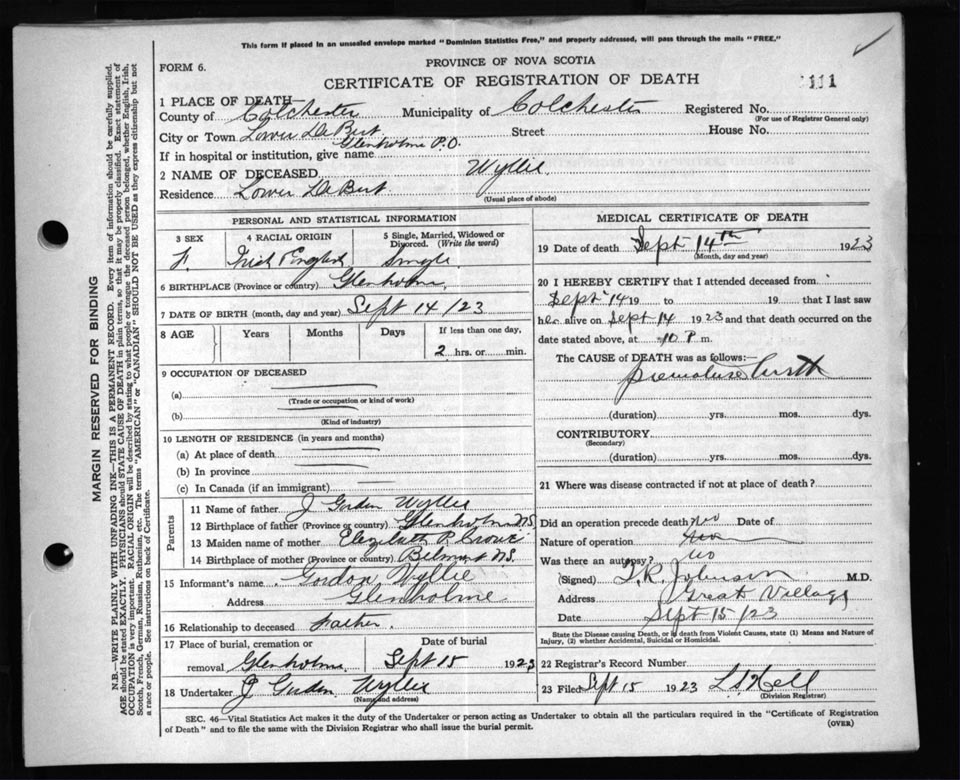 This form if placed in an unsealed envelope marked "Dominion Statistics Free," and properly addressed, will pass through the mails "FREE."
FORM 6.
PROVINCE OF NOVA SCOTIA
CERTIFICATE OF REGISTRATION OF DEATH
111
1 PLACE OF DEATH
County of Colchester Municipality of Colchester Registered No.
(For use of Registrar General only)
City or Town Lower DeBert Street House No.
Glenholme P.O.
If in hospital or institution, give name
2 NAME OF DECEASED Wyllie
Residence Lower DeBert
(Usual place of abode)
PERSONAL AND STATISTICAL INFORMATION
3 SEX 4 RACIAL ORIGIN 5 Single, Married, Widowed or Divorced. (Write the word)
F. Irish English Single
6 BIRTHPLACE (Province or country) Glenholme
7 DATE OF BIRTH (month, day and year) Sept 14/23
8 AGE Years Months Days If less than one day,
2 hrs. or min.
9 OCCUPATION OF DECEASED
(a)
(Trade or occupation or kind of work)
(b)
(Kind of industry)
10 LENGTH OF RESIDENCE (in years and months)
(a) At place of death
(b) In province
(c) In Canada (if an immigrant)
Parents
11 Name of father J Gordon Wyllie
12 Birthplace of father (Province or country) Glenholme N.S
13 Maiden name of mother Elizabeth P. Crowe
14 Birthplace of mother (Province or country) Belmont N.S.
15 Informant's name Gordon Wyllie
Address Glenholme
16 Relationship to deceased Father.
17 Place of burial, cremation or Date of burial
removal Glenholme Sept 15 1923
18 Undertaker J Gordon Wyllie
(Name and address)
MEDICAL CERTIFICATE OF DEATH
19 Date of death Sept 14th 1923
(Month, day and year)
20 I HEREBY CERTIFY that I attended deceased from
Sept 14 19 to 19 that I last saw
her alive on Sept 14 1923 and that death occurred on
date stated above, at 10 P m.
The CAUSE of DEATH was as follows:—
premature birth
(duration) yrs. mos. dys.
CONTRIBUTORY
(Secondary)
(duration) yrs. mos. dys.
21 Where was disease contracted if not at place of death?
Did an operation precede death? no Date of
Nature of operation
Was there an autopsy? no
(Signed) T.R. Johnson M.D.
Address Great Village
Date Sept 15/23
State the Disease causing Death, or in death from Violent Causes, state (1) Means and Nature of
Injury, (2) whether Accidental, Suicidal or Homicidal.
22 Registrar's Record Number
23 Filed Sept 15 1923 Hill
(Division Registrar)
SEC. 46—Vital Statistics Act makes it the duty of the Undertaker or person acting as Undertaker to obtain all the particulars required in the "Certificate of Registration
of Death" and to file the same with the Division Registrar who shall issue the burial permit.
(OVER)
MARGIN RESERVED FOR BINDING
N.B.—WRITE PLAINLY WITH UNFADING INK—THIS IS A PERMANENT RECORD. Every item of information should be carefully supplied.
AGE should be stated EXACTLY. PHYSICIANS should STATE CAUSE OF DEATH in plain terms, so that it may be properly classified. Exact statement of
OCCUPATION is very important. RACIAL ORIGIN will be described by stating to what people or tongue the deceased person belonged, whether English, Irish,
Scotch, French, German, Russian, Ruthenian, etc. The terms "AMERICAN" or "CANADIAN" SHOULD NOT BE USED as they express citizenship but not
a race or people. See instructions on back of Certificate.